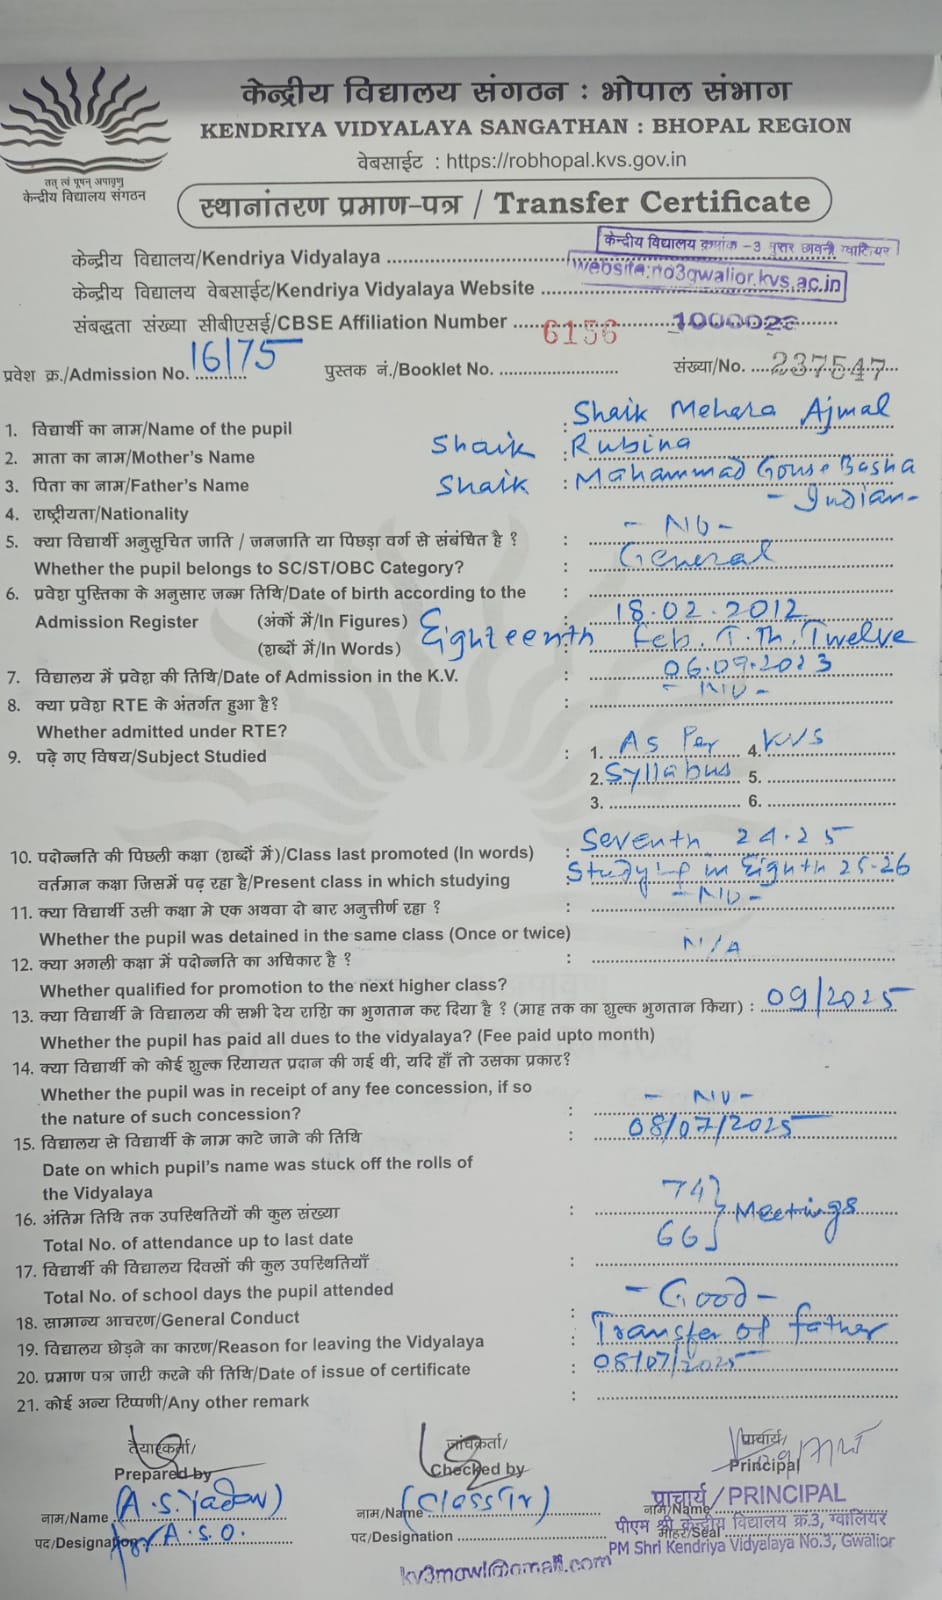 केन्द्रीय विद्यालय संगठन : भोपाल संभाग
KENDRIYA VIDYALAYA SANGATHAN : BHOPAL REGION
वेबसाईट : https://robhopal.kvs.gov.in
तत् त्वं पूषन् अपावृणु
केन्द्रीय विद्यालय संगठन
स्थानांतरण प्रमाण-पत्र / Transfer Certificate
केन्द्रीय विद्यालय/Kendriya Vidyalaya केन्द्रीय विद्यालय क्रमांक -3 छावनी ग्वालियर
केन्द्रीय विद्यालय वेबसाईट/Kendriya Vidyalaya Website website:no3gwalior.kvs.ac.in
संबद्धता संख्या सीबीएसई/CBSE Affiliation Number 1000026
प्रवेश क्र./Admission No. 16175 पुस्तक नं./Booklet No. 6156 संख्या/No. 237547
1. विद्यार्थी का नाम/Name of the pupil : Shaik Mehara Ajmal
2. माता का नाम/Mother's Name Shaik : Rubina
3. पिता का नाम/Father's Name Shaik : Mahammad Gouse Basha
4. राष्ट्रीयता/Nationality - Indian -
5. क्या विद्यार्थी अनुसूचित जाति / जनजाति या पिछड़ा वर्ग से संबंधित है ? : - No -
Whether the pupil belongs to SC/ST/OBC Category? : General
6. प्रवेश पुस्तिका के अनुसार जन्म तिथि/Date of birth according to the :
Admission Register (अंकों में/In Figures) : 18.02.2012
(शब्दों में/In Words) Eighteenth : Feb. T.Th. Twelve
7. विद्यालय में प्रवेश की तिथि/Date of Admission in the K.V. : 06.09.2023
8. क्या प्रवेश RTE के अंतर्गत हुआ है? : - No -
Whether admitted under RTE?
9. पढ़े गए विषय/Subject Studied : 1. As Per 4. KVS
2. Syllabus 5.
3. 6.
10. पदोन्नति की पिछली कक्षा (शब्दों में)/Class last promoted (In words) : Seventh 24-25
वर्तमान कक्षा जिसमें पढ़ रहा है/Present class in which studying : Studying in Eighth 25-26
11. क्या विद्यार्थी उसी कक्षा मे एक अथवा दो बार अनुत्तीर्ण रहा ? : - No -
Whether the pupil was detained in the same class (Once or twice)
12. क्या अगली कक्षा में पदोन्नति का अधिकार है ? : N/A
Whether qualified for promotion to the next higher class?
13. क्या विद्यार्थी ने विद्यालय की सभी देय राशि का भुगतान कर दिया है ? (माह तक का शुल्क भुगतान किया) : 09/2025
Whether the pupil has paid all dues to the vidyalaya? (Fee paid upto month)
14. क्या विद्यार्थी को कोई शुल्क रियायत प्रदान की गई थी, यदि हाँ तो उसका प्रकार?
Whether the pupil was in receipt of any fee concession, if so
the nature of such concession? : - No -
15. विद्यालय से विद्यार्थी के नाम काटे जाने की तिथि : 08/07/2025
Date on which pupil's name was stuck off the rolls of
the Vidyalaya
16. अंतिम तिथि तक उपस्थितियों की कुल संख्या : 74 } Meetings
Total No. of attendance up to last date 66
17. विद्यार्थी की विद्यालय दिवसों की कुल उपस्थितियाँ :
Total No. of school days the pupil attended
18. सामान्य आचरण/General Conduct : - Good -
19. विद्यालय छोड़ने का कारण/Reason for leaving the Vidyalaya : Transfer of father
20. प्रमाण पत्र जारी करने की तिथि/Date of issue of certificate : 08/07/2025
21. कोई अन्य टिप्पणी/Any other remark :
तैयारकर्ता/ जांचकर्ता/ प्राचार्य/
Prepared by Checked by Principal
नाम/Name (A.S. Yadav) नाम/Name (Class Tr) नाम/Name प्राचार्य / PRINCIPAL
पद/Designation for A.S.O. पद/Designation मोहर/Seal पीएम श्री केन्द्रीय विद्यालय क्र.3, ग्वालियर
PM Shri Kendriya Vidyalaya No.3, Gwalior